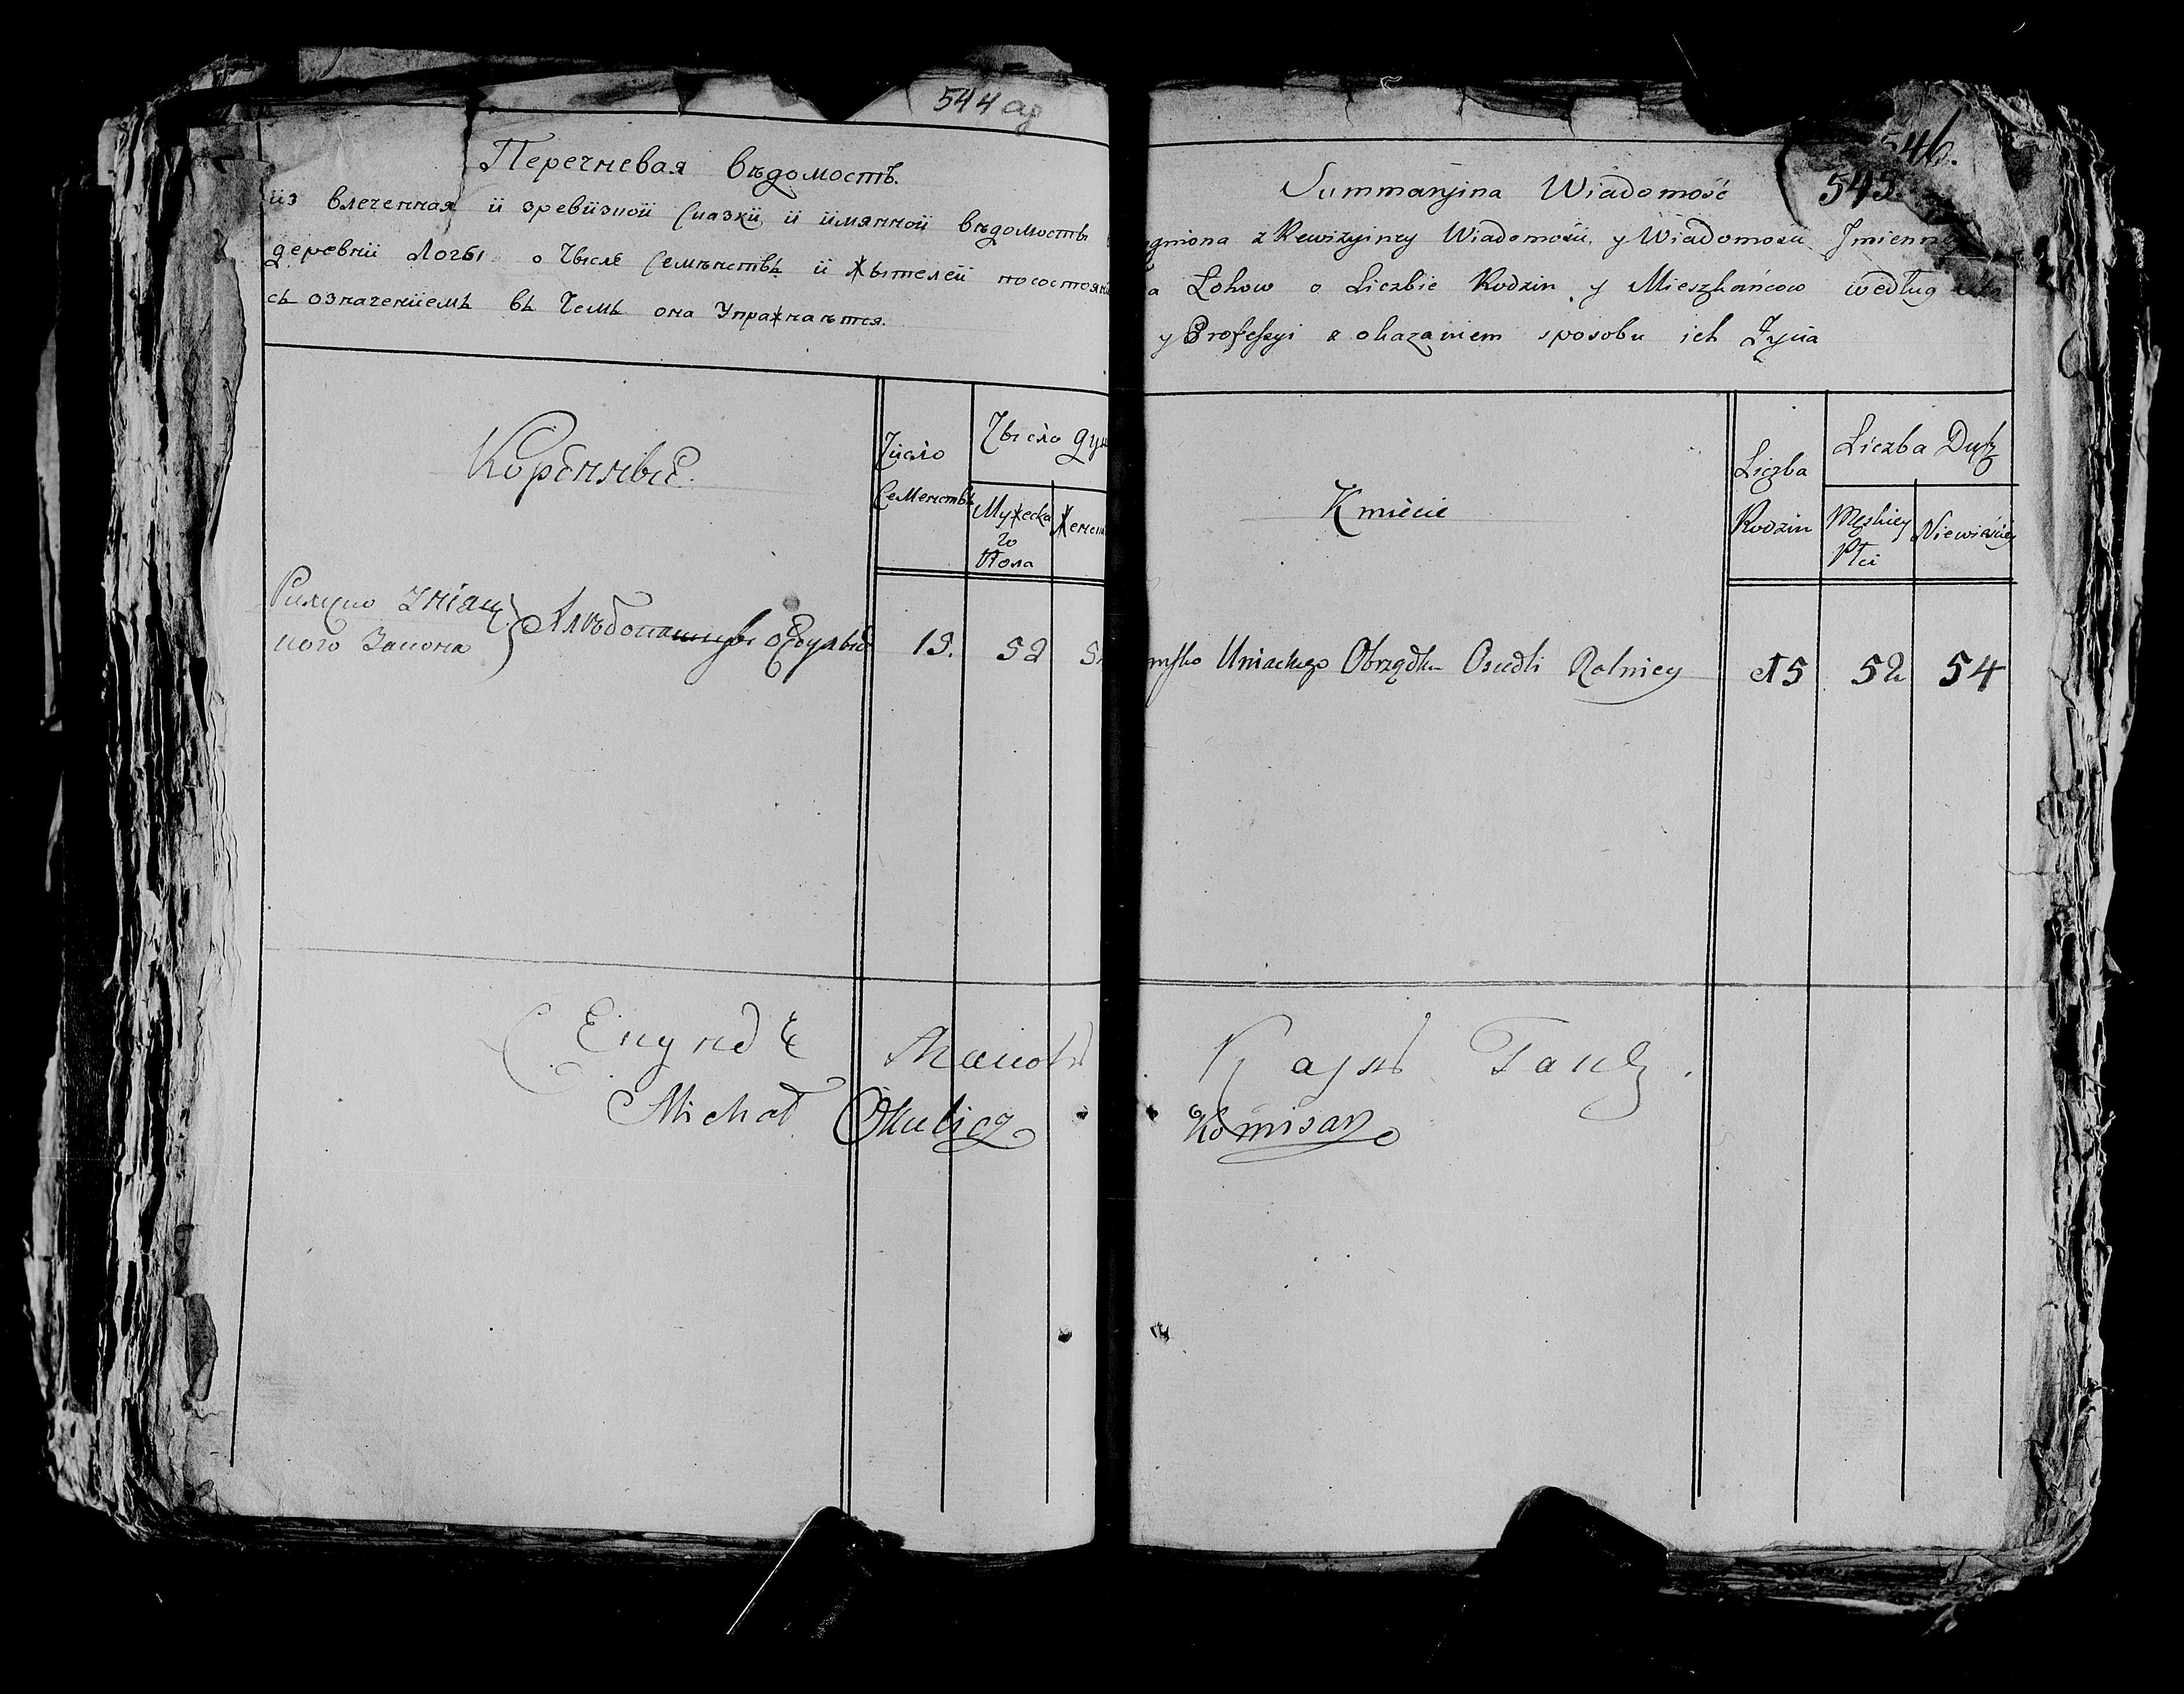 544
Перечневая вѣдомость.
из влеченная и зревизной сказки и имянной вѣдомость
деревни Логы о Числе Семѣнствъ и Жытелей
съ означениемъ въ Чемъ она Упражнаѣтся.
Коренные.
Число
Семенствъ
Число
Мужеска
го
Пола
Римско Уніац
кого Закона
оседлые 15. 52
Michał Okulicz
546.
545
Summaryina Wiadomość
z Rewizyiney Wiadomości, y Wiadomości
Łohow o Liczbie Rodzin y Mieszkańcow według
y Professyi z okazaniem sposobu ich Życia
Kmiecie
Liczba
Rodzin
Liczba Dusz
Męskiey
Płci
Niewieściey
Uniackiego Obrządku Osiedli Rolnicy 15 52 54
Komisarz